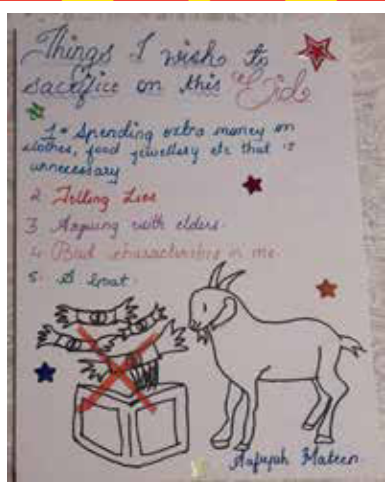 Things I wish to
sacrifice on this Eid
1. Spending extra money on
clothes, food jewellery etc that is
unnecessary
2. Telling Lies
3. Arguing with elders.
4. Bad characteristics in me.
5. A Goat.
Mateen